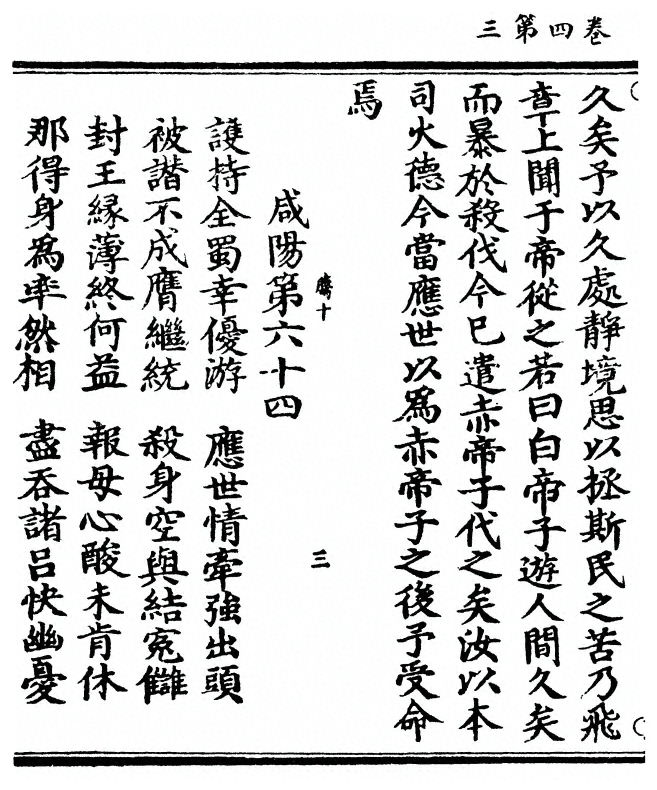 三第四卷
久矣予以久處靜境思以拯斯民之苦乃飛
章上聞于帝從之若曰白帝子遊人間久矣
而暴於殺伐今已遣赤帝子代之矣汝以本
司火德今當應世以為赤帝子之後予受命
焉
咸陽第六十四
護持全蜀幸優游　應世情牽強出頭
被譖不成膺繼統　殺身空與結冤讎
封王緣薄終何益　報母心酸未肯休
那得身為率然相　盡吞諸呂快幽憂
三